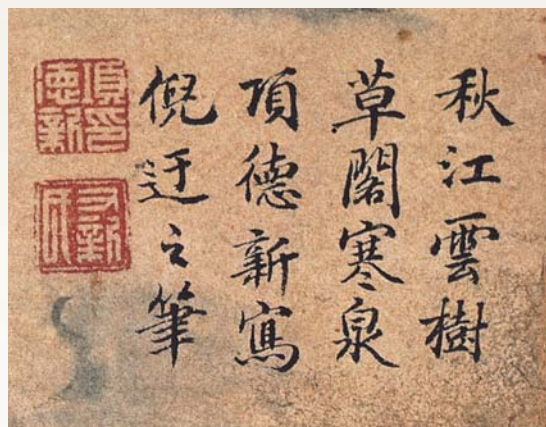 秋江雲樹
草閣寒泉
項德新寫
倪迂之筆
項印德新
又新氏